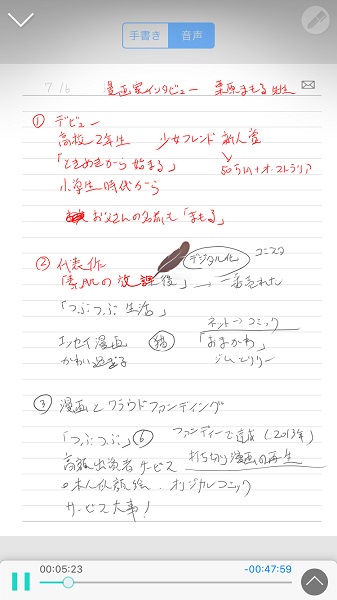 手書き 音声
7/6 漫画家インタビュー 栗原まもる先生
① デビュー
高校2年生 少女フレンド 新人賞
「ときめきから始まる」 50万円+オーストラリア
小学生時代から
お父さんの名前も「まもる」
② 代表作 デジタル化 コミスタ
「素肌の放課後」 → 一番売れた
「つぶつぶ生活」
ネット→コミック
エッセイ漫画 「あまかわ」
かわい過ぎる ジムとリリー
③ 漫画とクラウドファンディング
「つぶつぶ」⑥ ファンディーで達成(2013年)
高額出資者サービス 打ち切り漫画の再生
○本人似顔絵 . オリジナルコミック
サービス大事!
00:05:23 -00:47:59